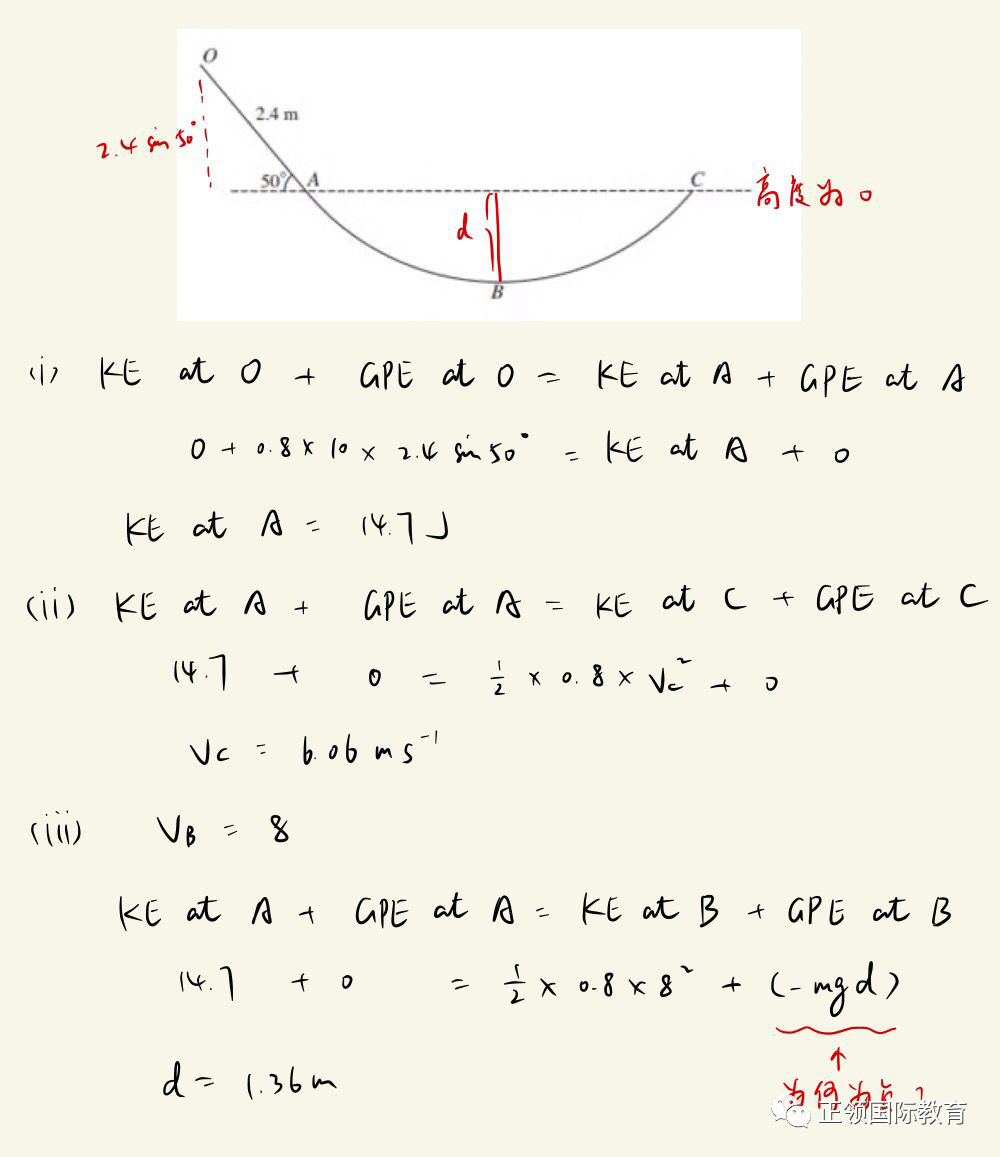 O
2.4 m
2.4 sin 50°
50° A
C
高度为 0
d
B
(i) KE at O + GPE at O = KE at A + GPE at A
0 + 0.8 × 10 × 2.4 sin 50° = KE at A + 0
KE at A = 14.7 J
(ii) KE at A + GPE at A = KE at C + GPE at C
14.7 + 0 = 1/2 × 0.8 × Vc² + 0
Vc = 6.06 m s⁻¹
(iii) VB = 8
KE at A + GPE at A = KE at B + GPE at B
14.7 + 0 = 1/2 × 0.8 × 8² + (-mgd)
d = 1.36 m
为何为负?
正领国际教育